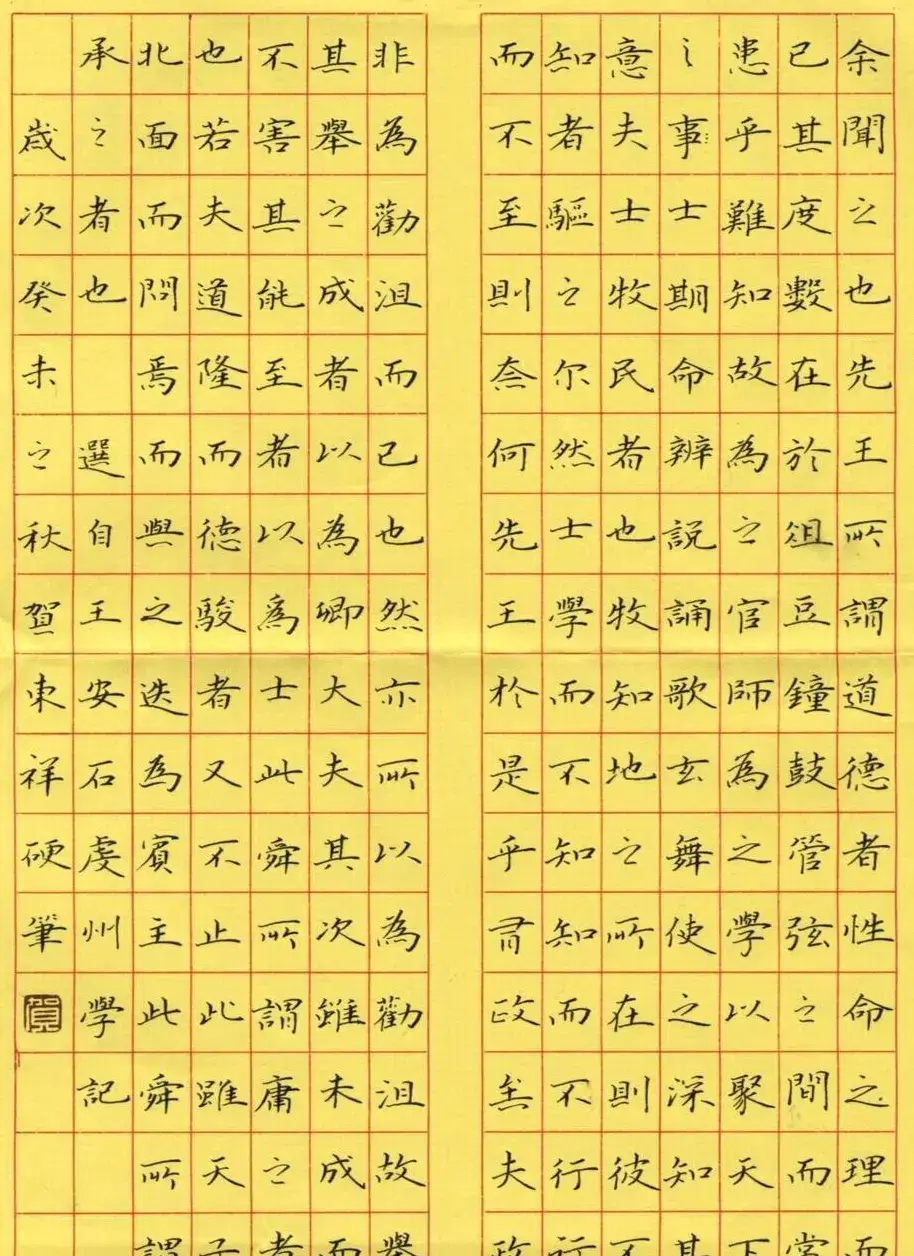 余聞之也先王所謂道德者性命之理而
已其度數在於俎豆鐘鼓管弦之間而常
患乎難知故為之官師為之學以聚天下
之事士期命辨說誦歌玄舞使之深知其
意夫士牧民者也牧知地之所在則彼不
知者驅之尔然士學而不知知而不行行
而不至則奈何先王於是乎有政矣夫政
非為勸沮而已也然亦所以為勸沮故舉
其舉之成者以為卿大夫其次雖未成而
不害其能至者以為士此舜所謂庸之者
也若夫道隆而德駿者又不止此雖天子
北面而問焉而與之迭為賓主此舜所謂
承之者也 選自王安石虔州學記
歲次癸未之秋賀東祥硬筆 賀